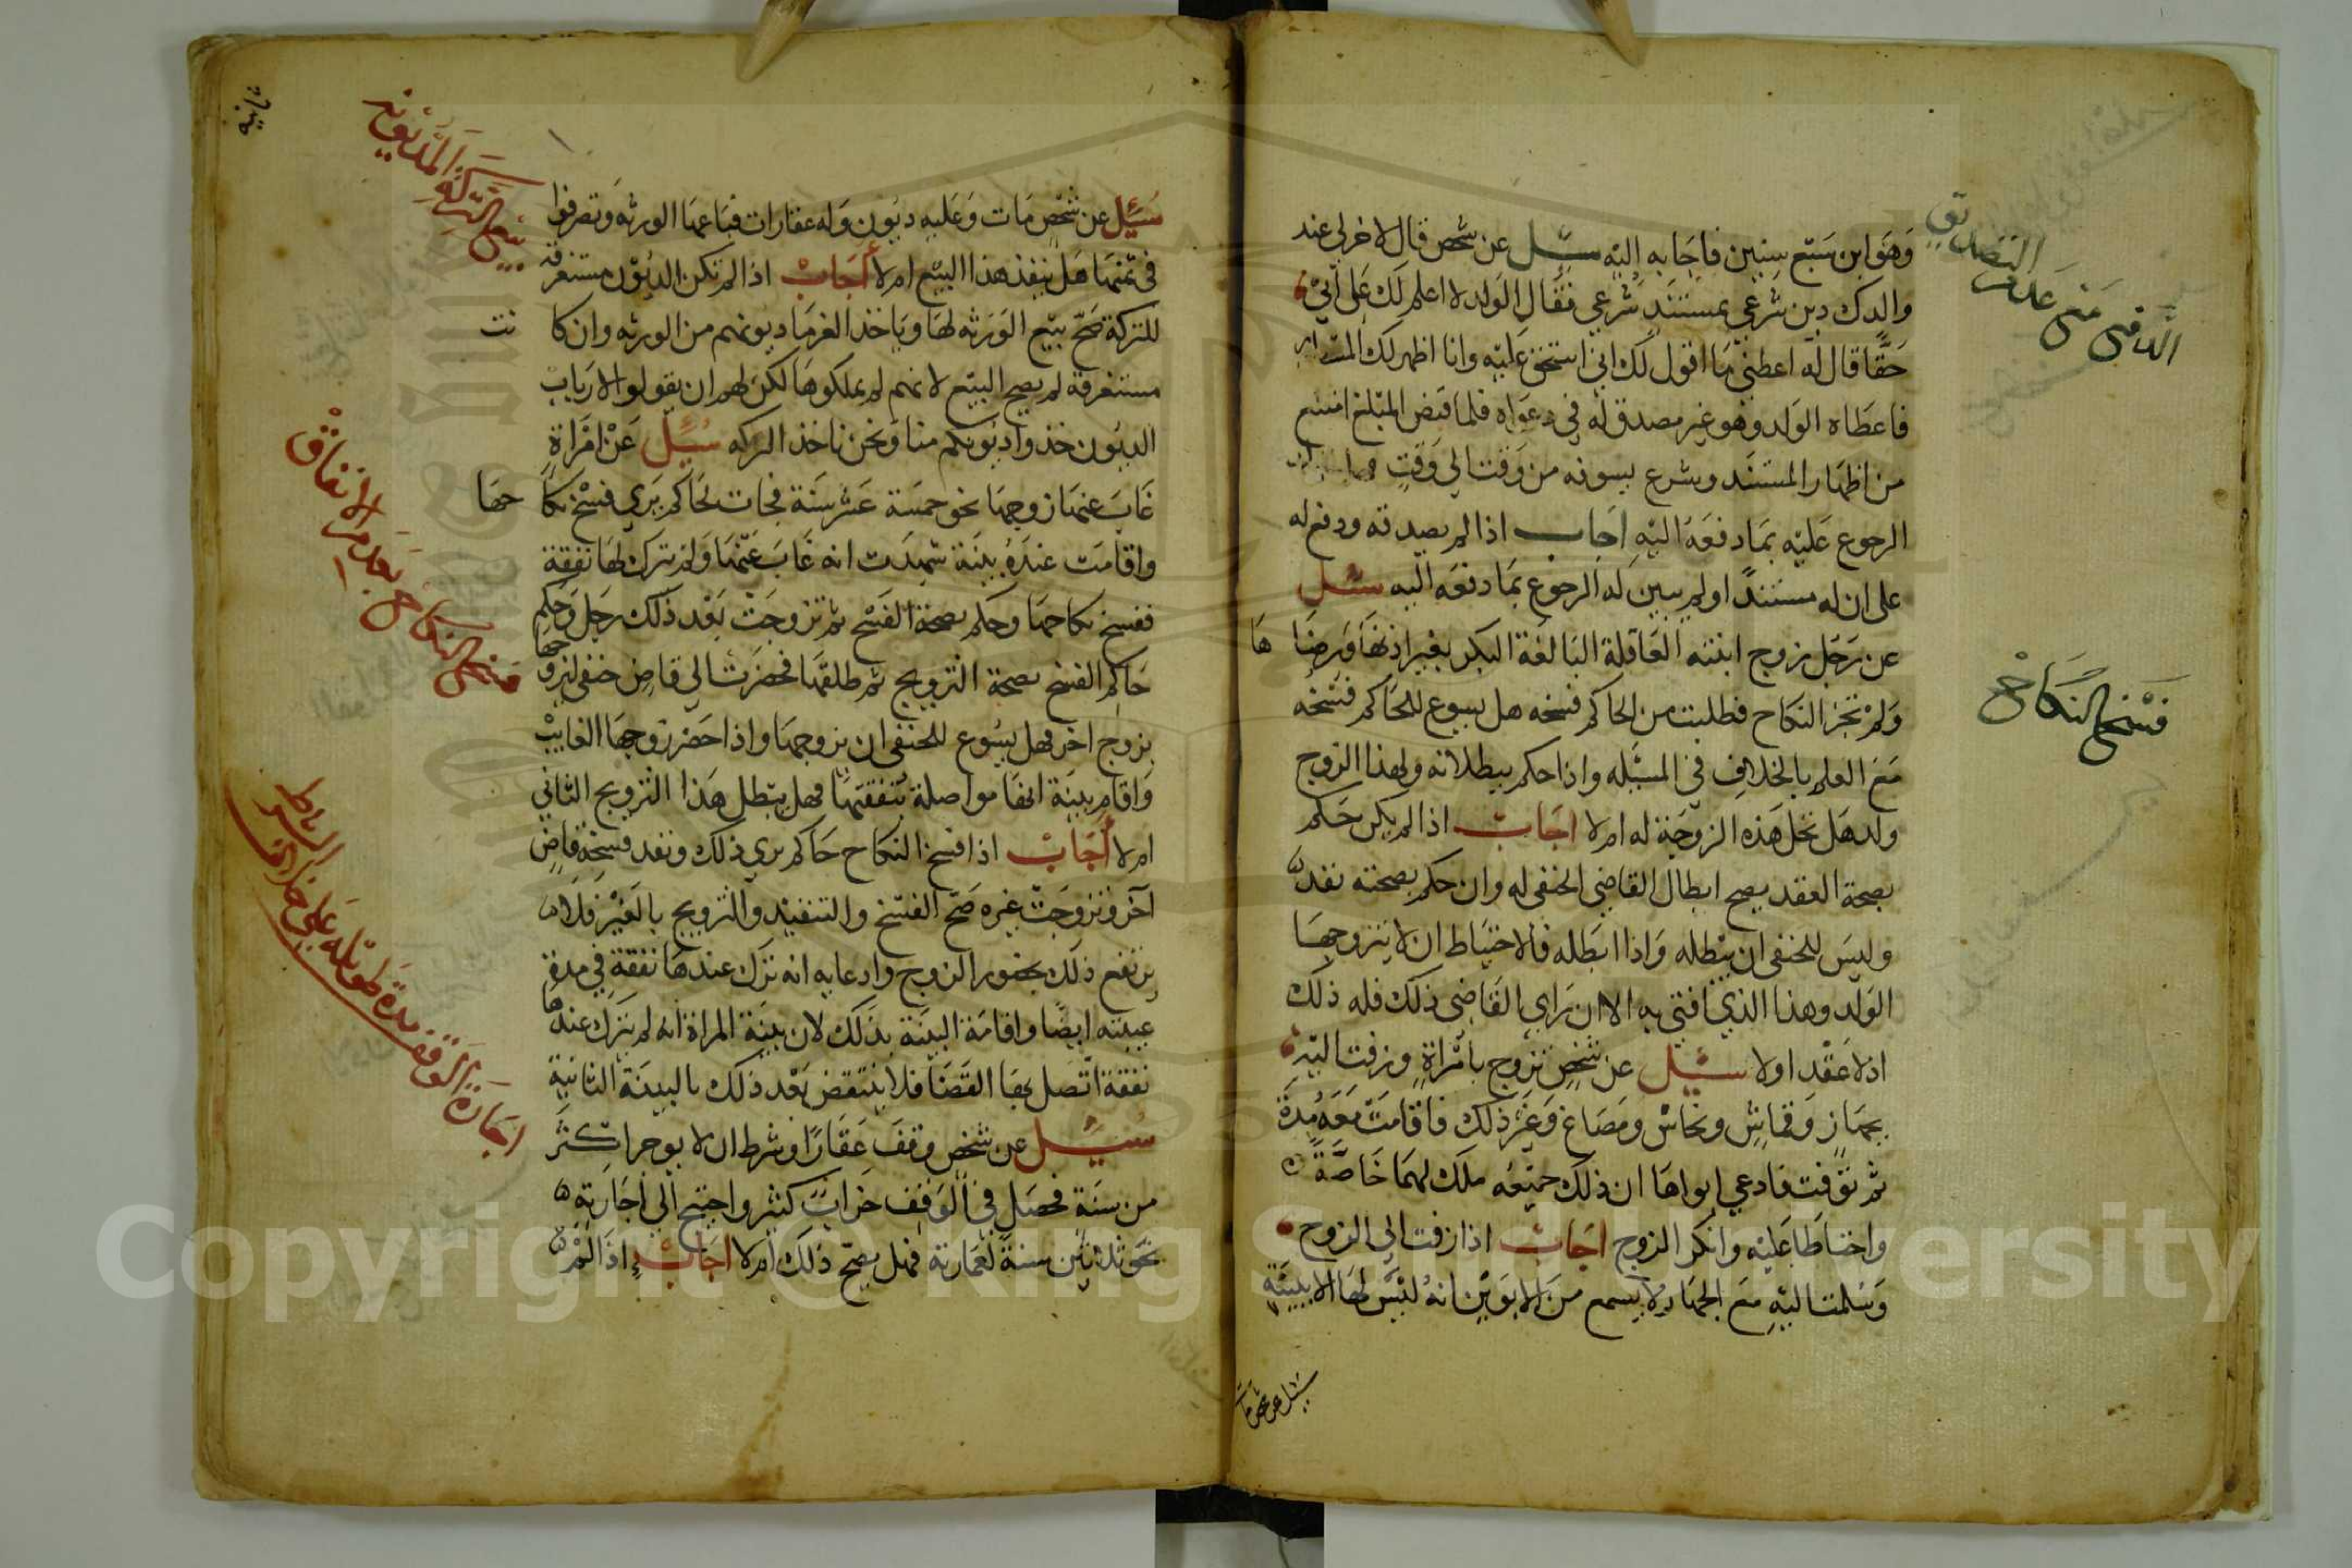 وهو ابن سبع سنين فاجابه اليه سئل عن شخص قال لاخر لي عند
والدك دين شرعي بمستند شرعي فقال الولد لا اعلم لك على ابي
حقا قال له اعطني ما اقول لك اني استحق عليه وانا اظهر لك
فاعطاه الولد وهو غير مصدق له في دعواه فلما قبض المبلغ امتنع
من اظهار المستند وشرع يسوفه من وقت الي وقت
الرجوع عليه بما دفعه اليه اجاب اذا لم يصدقه ودفع له
على ان له مستندا ولم يبين له الرجوع بما دفعه اليه سئل
عن رجل زوج ابنته العاقلة البالغة البكر بغير اذنها ورضاها
ولم تجز النكاح فطلبت من الحاكم فسخه هل يسوع للحاكم فسخه
مع العلم بالخلاف في المسئله واذا حكم ببطلانه ولهذا الزوج
ولد هل تحل هذه الزوجة له ام لا اجاب اذا لم يكن حكم
بصحة العقد يصح ابطال القاضي الحنفي له وان حكم بصحته نفد
وليس للحنفي ان يبطله واذا ابطله فالاحتياط ان لا يتزوجها
الولد وهذا الذي افتي به الا ان راي القاضي ذلك فله ذلك
اذ لا عقد اولا سئل عن شخص تزوج بامراة وزفت اليه
بجهاز وقماش ونحاس ومصاغ وغير ذلك فاقامت معه مدة
ثم توفت فادعي ابواها ان ذلك جميعه ملك لهما خاصة
واحتاطا عليه وانكر الزوج اجاب اذا زفت الي الزوج
وسلمت اليه مع الجهاز لا يسمع من الابوين انه ليس لها الا ببينة
سئل عن شخص مات
الدافع مع عدم التصديق
فسخ النكاح
سئل عن شخص مات وعليه ديون وله عقارات فباعها الورثه وتصرفوا
في ثمنها هل ينفذ هذا البيع ام لا اجاب اذا لم تكن الديون مستغرقة
للتركة صح بيع الورثه لها وياخذ الغرما ديونهم من الورثه وان كانت
مستغرقة لم يصح البيع لانهم لم يملكوها لكن لهم ان يقولوا لارباب
الديون خذوا ديونكم منا ونحن ناخذ التركه سئل عن امراة
غاب عنها زوجها نحو خمسة عشر سنة فجات لحاكم يري فسخ نكاحها
واقامت عنده بينة شهدت انه غاب عنها ولم يترك لها نفقة
ففسخ نكاحها وحكم بصحة الفسخ ثم تزوجت بعد ذلك رجل وحكم
حاكم الفسخ بصحة التزويج ثم طلقها فحضرت الي قاض حنفي ليزوجها
بزوج اخر فهل يسوع للحنفي ان يزوجها واذا حضر زوجها الغايب
واقام بينة انها مواصلة بنفقتها فهل يبطل هذا التزويج الثاني
ام لا اجاب اذا فسخ النكاح حاكم يري ذلك ونفد فسخه قاض
آخر وتزوجت غيره صح الفسخ والتنفيذ والتزويج بالغير فلا
يرتفع ذلك بحضور الزوج وادعايه انه ترك عندها نفقة في مدة
غيبته ايضا واقامة البينة بذلك لان بينة المراة انه لم يترك عندها
نفقة اتصل بها القضا فلا ينتقض بعد ذلك بالبينة الثانية
سئل عن شخص وقف عقارا وشرط ان لا يوجر اكثر
من سنة فحصل في الوقف خراب كثير واحتيج الي اجارته
نحو ثلاثين سنة لعمارته فهل يصح ذلك ام لا اجاب اذا لم
ثانية
بيع التركة المديونة
فسخ النكاح بعدم الانفاق
اجارة الوقف مدة طويله على خلاف الشرط
Copyright © King Saud University